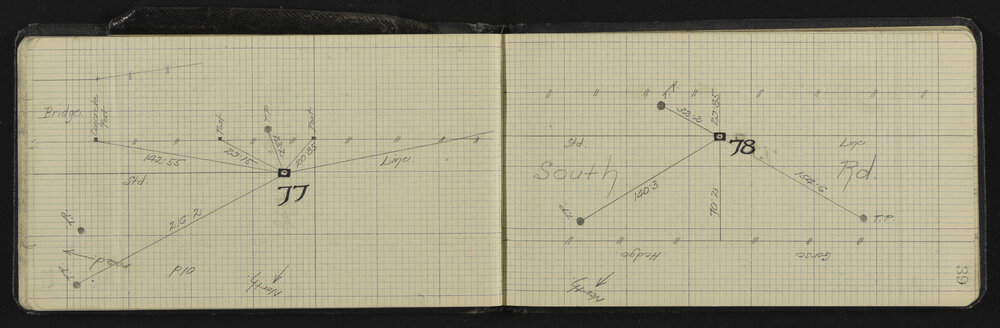 Bridge.
Concrete Post
Post
T.P.
Post
142.55
20.15
23.2
20.35
Std.
Line
77
T.P.
215.2
T.P.
Old road.
North.
T.P.
33.2
22.95
Std.
Line
78
South Rd.
140.3
70.2
154.6
T.P.
T.P.
Hedge
Gorse
North.
39